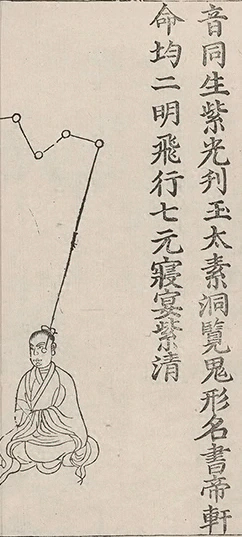 音同生紫光刋玉太素洞覽鬼形名書帝軒
命均二明飛行七元寢宴紫清